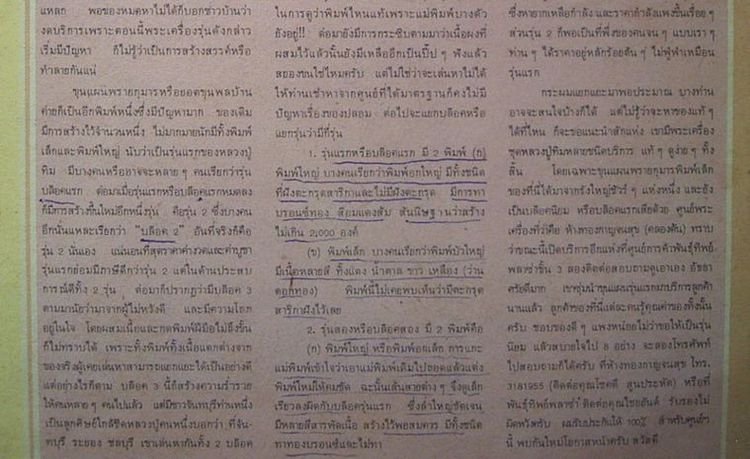 แหลก พอของหมดหาไม่ได้ก็บอกชาวบ้านว่า
งดบริการเพราะตอนนี้พระเครื่องรุ่นดังกล่าว
เริ่มมีปัญหา ก็ไม่รู้ว่าเป็นการสร้างสรรค์หรือ
ทำลายกันแน่
ขุนแผนพรายกุมารหรือยอดขุนพลบ้าน
ค่ายก็เป็นอีกพิมพ์หนึ่งซึ่งมีปัญหามาก ของเดิม
มีการสร้างไว้จำนวนหนึ่ง ไม่มากมายนักมีทั้งพิมพ์
เล็กและพิมพ์ใหญ่ นับว่าเป็นรุ่นแรกของหลวงปู่
ทิม มีบางคนหรืออาจจะหลาย ๆ คนเรียกว่ารุ่น
บล๊อคแรก ต่อมาเมื่อรุ่นแรกหรือบล๊อคแรกหมดลง
ก็มีการสร้างขึ้นใหม่อีกหนึ่งรุ่น คือรุ่น 2 ซึ่งบางคน
อีกนั่นแหละเรียกว่า "บล๊อค 2" อันที่จริงก็คือ
รุ่น 2 นั่นเอง แน่นอนที่สุดราคาค่างวดและค่าบูชา
รุ่นแรกย่อมมีภาษีดีกว่ารุ่น 2 แต่ในด้านประสบ
การณ์ดีทั้ง 2 รุ่น ต่อมาก็ปรากฏว่ามีบล๊อค 3
ตามมานัยว่ามาจากผู้ไม่หวังดี และมีความโลภ
อยู่ในใจ โดยผสมเนื้อและกดพิมพ์ฝีมือไม่ถึงขั้น
ก็ไม่ทราบได้ เพราะทั้งพิมพ์ทั้งเนื้อแตกต่างจาก
ของจริงผู้เคยเล่นหาสามารถแยกแยะได้เป็นอย่างดี
แต่อย่างไรก็ตาม บล๊อค 3 นี้ก็สร้างความร่ำรวย
ให้คนหลาย ๆ คนไปแล้ว แต่มีชาวจันทบุรีท่านหนึ่ง
เป็นลูกศิษย์ใกล้ชิดหลวงปู่คนหนึ่งบอกว่า ที่จัน-
ทบุรี ระยอง ชลบุรี เขาเล่นหากันทั้ง 2 บล๊อค
ในการดูว่าพิมพ์ไหนแท้เพราะแม่พิมพ์บางตัว
ยังอยู่!! ต่อมายังมีการกระซิบตามมาว่าเนื้อผงที่
ผสมไว้แล้วนั้นยังมีเหลืออีกเป็นปี๊ป ๆ ฟังแล้ว
สยองขนไช่ไหมครับ แต่ไม่ใช่ว่าจะเล่นหาไม่ได้
ให้ท่านเช่าหาจากศูนย์ที่ได้มาตรฐานก็คงไม่มี
ปัญหาเรื่องของปลอม ต่อไปจะแยกบล๊อคหรือ
แยกรุ่นว่ามีกี่รุ่น
1. รุ่นแรกหรือบล๊อคแรก มี 2 พิมพ์ (ก)
พิมพ์ใหญ่ บางคนเรียกว่าพิมพ์อกใหญ่ มีทั้งชนิด
ที่ฝังตะกรุดสาริกาและไม่มีฝังตะกรุด มีการทา
บรอนซ์ทอง สีอมแดงส้ม สันนิษฐานว่าสร้าง
ไม่เกิน 2,000 องค์
(ข) พิมพ์เล็ก บางคนเรียกว่าพิมพ์บัวใหญ่
มีเนื้อหลายสี ทั้งแดง น้ำตาล ขาว เหลือง (ว่าน
ดอกทอง) พิมพ์นี้ไม่เคยพบเห็นว่ามีตะกรุด
สาริกาฝังไว้เลย
2. รุ่นสองหรือบล๊อคสอง มี 2 พิมพ์คือ
(ก) พิมพ์ใหญ่ หรือพิมพ์อกเล็ก การแกะ
แม่พิมพ์เข้าใจว่าเอาแม่พิมพ์เดิมไปลอกแล้วแต่ง
พิมพ์ใหม่ให้คมชัด ฉะนั้นเส้นสายต่าง ๆ จึงดูเล็ก
เรียวลงผิดกับบล๊อครุ่นแรก ซึ่งล่ำใหญ่ชัดเจน
มีหลายสีสารพัดเนื้อ สร้างไว้พอสมควร มีทั้งชนิด
ทาทองบรอนซ์และไม่ทา
ซึ่งหายากเหลือกำลัง และราคากำลังแพงขึ้นเรื่อย ๆ
ส่วนรุ่น 2 ก็พอเป็นที่พึ่งของคนจน ๆ แบบเรา ๆ
ท่าน ๆ ได้ราคาอยู่หลักร้อยต้น ๆ ไม่ฟู่ฟ่าเหมือน
รุ่นแรก
กระผมแยกแยะมาพอประมาณ บางท่าน
อาจจะสนใจบ้างก็ได้ แต่ไม่รู้ว่าจะหาของแท้ ๆ
ได้ที่ไหน ก็จะขอแนะนำสักแห่ง เขามีพระเครื่อง
ชุดหลวงปู่ทิมหลายชนิดบริการ แท้ ๆ ดูง่าย ๆ ทั้ง
สิ้น โดยเฉพาะขุนแผนพรายกุมารพิมพ์เล็ก
ของที่นี่ได้มาจากรังใหญ่ชัวร์ ๆ แห่งหนึ่ง และยัง
เป็นบล๊อคนิยม หรือบล๊อคแรกเสียด้วย ศูนย์พระ
เครื่องที่ว่าคือ ห้างทองกาญจนสุข (คลองตัน) ทราบ
ว่าขณะนี้เปิดบริการอีกแห่งที่ศูนย์การค้าพันธุ์ทิพย์
พลาซ่าชั้น 3 ลองติดต่อสอบถามดูเอาเอง อัธยา
ศรัยดีมาก เขาซุ่มนำขุนแผนรุ่นแรกมาบริการลูกค้า
นานแล้ว ลูกค้าของที่นี่แต่ละคนรู้คุณค่าของทั้งนั้น
ครับ ชอบของดี ๆ แพงหน่อยไม่ว่าขอให้เป็นรุ่น
นิยม แล้วสบายใจไป 8 อย่าง จะลองโทรศัพท์
ไปสอบถามก็ได้ครับ ที่ห้างทองกาญจนสุข โทร.
3181955 (ติดต่อคุณโชคดี สูนประหัต) หรือที่
พันธุ์ทิพย์พลาซ่า ติดต่อคุณไชยอันต์ รับรองไม่
ผิดหวังครับ ผมรับประกันให้ 100% สำหรับศูนย์ฯ
นี้ พบกันใหม่โอกาสหน้าครับ สวัสดี